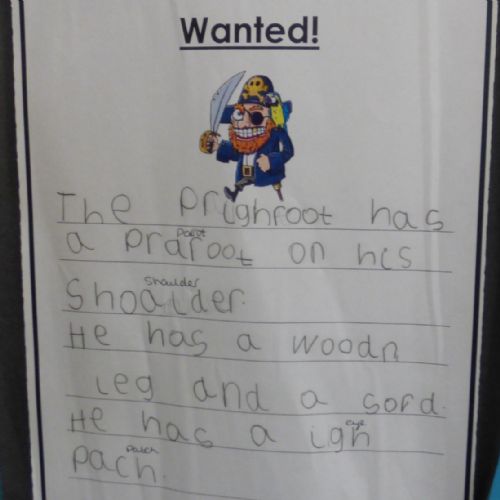 Wanted!
The prighroot has
parot
a prdroot on his
shoulder
Shoalder.
He has a woodn
leg and a sord.
eye
He has a igh
patch
pach.